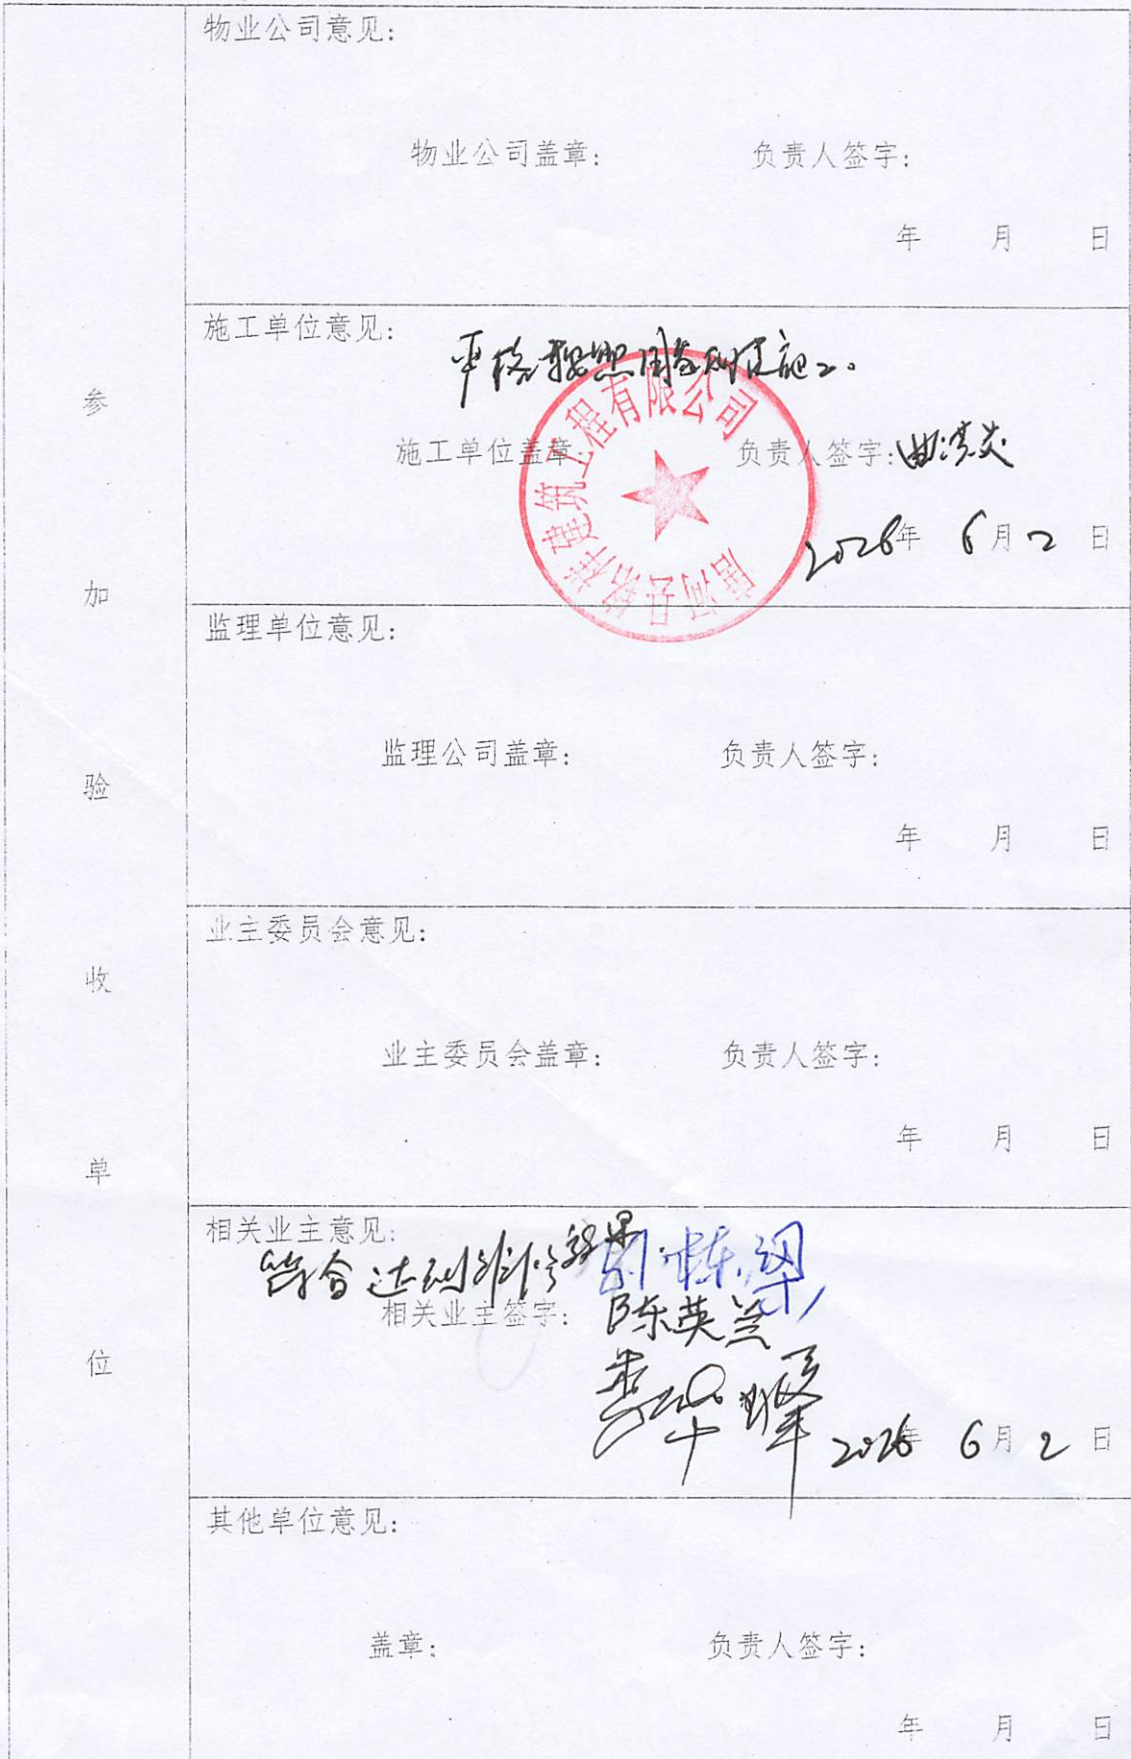 参加验收单位
物业公司意见:
物业公司盖章: 负责人签字:
年 月 日
施工单位意见:
严格按照国家 施工。
施工单位盖章: 负责人签字:
唐河县 祥建筑工程有限公司
2026年 6月2日
监理单位意见:
监理公司盖章: 负责人签字:
年 月 日
业主委员会意见:
业主委员会盖章: 负责人签字:
年 月 日
相关业主意见:
符合达到维修效果.
相关业主签字: 陈英兰
2026年 6月2日
其他单位意见:
盖章: 负责人签字:
年 月 日